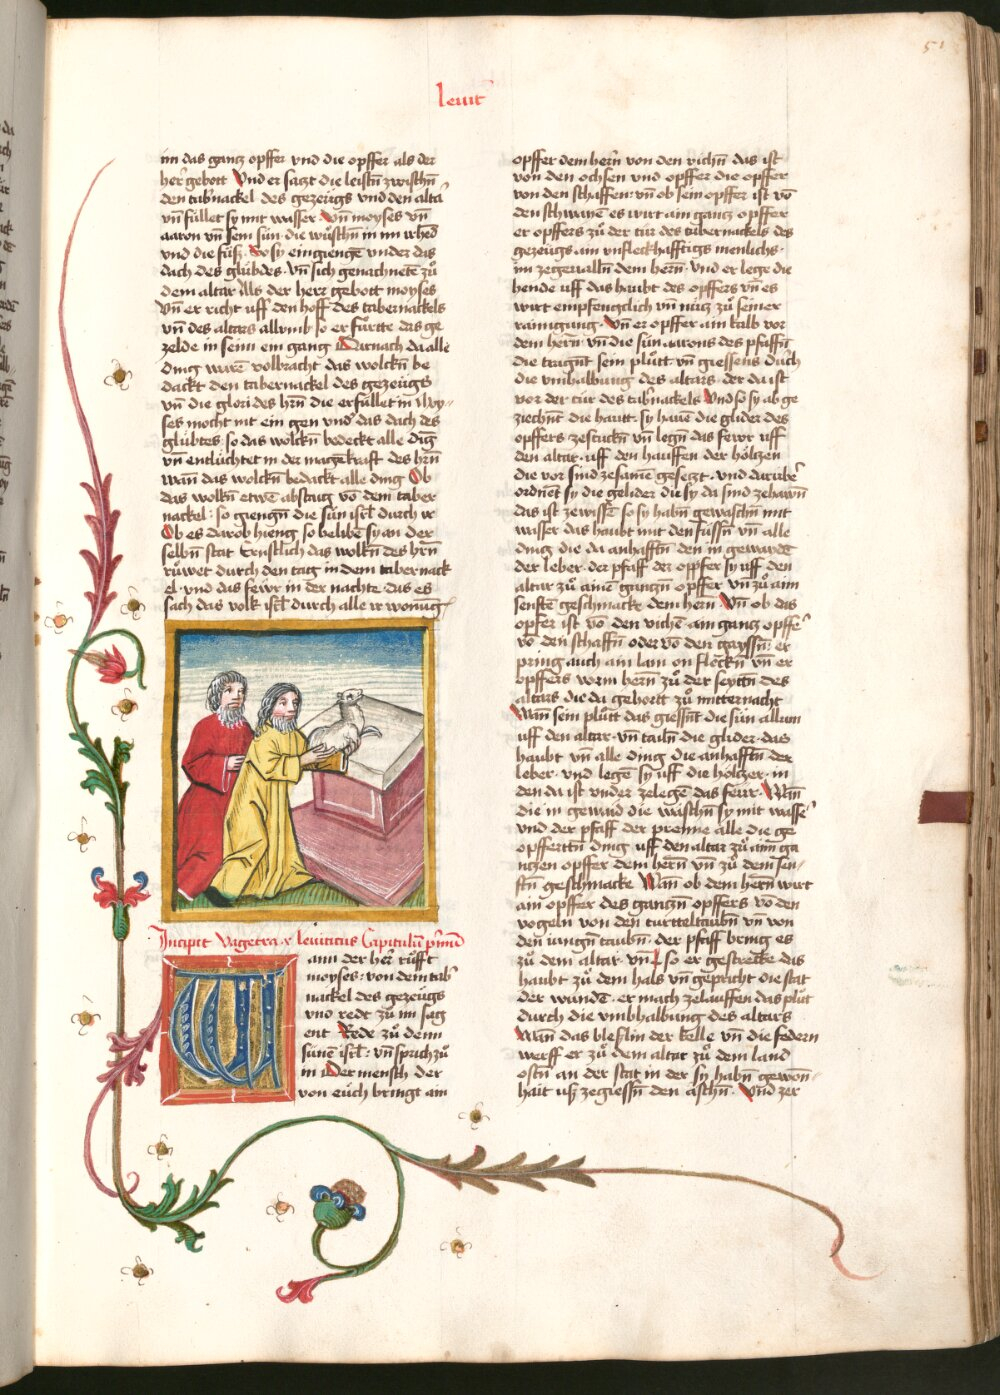 51
leuit
im das gantz opffer vnd die opffer als der
her gebott Vnd er satzt die leistn̄ zwischn̄
den tab'nackel des gezeugs vnd den alta
vn̄ füllet sy mit wasser Vn̄ moyses vn̄
aaron vn̄ sein sün die wüschn̄ in im ir hēd
vnd die füß So sy eingiengē vnder das
dach des glübdes vn̄ sich genachnetē zů
dem altar Als der herr gebott moyses
Vn̄ er richt uff den hoff des tabernackels
vn̄ des altars allvmb so er fůrtte das ge
zelde in seim ein gang Darnach da alle
ding warē volbracht das wolckn̄ be
dackt den tabernackel des gezeügs
vn̄ die glori des hrn̄ die erfüllet in Moy
ses mocht nit ein gen vnd' das dach des
glübtes so das wolckn̄ bedeckt alle dīg
vn̄ entlüchtet in der magekraft des hrn̄
Wan̄ das wolckn̄ bedackt alle ding Ob
das wolkn̄ etwē abstaig vō dem taber
nackel so giengn̄ die sün isrl̄ durch ir
Ob es darob hieng so belibē sy an der
selbn̄ stat Ernstlich das wolkn̄ des hrn̄
růwet durch den tag in dem tabernack
el vnd das fewr in der nachte das es
sach das volk isrl̄ durch alle ir wonūg
Incipit Vagetra x leuiticus Capitulū p'mū
ann der her' růfft
moyses von dem tab'
nackel des gezeugs
vnd redt zů im sag
ent Rede zů denn
sünē isrl̄ vn̄ sprich zů
in Der mensch der
von eüch bringt ain
opffer dem hern̄ von den vichn̄ das ist
von den ochsen vnd opffer die opffer
von den schaffen vn̄ ob sein opffer ist vō
den schwainē es wirt ain gantz opffer
er opffers zů der tür des tabernackels des
gezeugs ain vnfleckhafftigs menlichs
im zegeualln̄ dem hern̄ vnd er lege die
hende uff das haubt des opffers vn̄ es
wirt empfengclich vn̄ nütz zů seiner
rainigung Vn̄ er opffer ain kalb vor
dem hern̄ vn̄ die sün aarons des pfaffn̄
die tragnt sein plůtt vn̄ giessens durch
die vmhalbung des altars der da ist
vor der tür des tab'nackels Vnd so sy ab ge
ziechnt die hautt sy hauē die glider des
opffers zestuckn̄ vn̄ legn̄ das fewr uff
den altar uff den hauffen der höltzen
die vor sind zesamē gesetzt vnd darübe'
ordnet sy die gelider die sy da sind zehawn̄
das ist zewissē so sy habn̄ gewaschn̄ mit
wasser das haubt mit den füssn̄ vn̄ alle
ding die da anhafftn̄ den in gewaide
der leber der pfaff der opffer sy uff den
altar zů ainē gantzn̄ opffer vn̄ zů aim
senftē geschmackt dem hern̄ Vn̄ ob das
opfer ist vō den vichē ain gantz opffe'
vō den schaffn̄ oder vō den gayssn̄ er
pring auch ain lam on fleckn̄ vn̄ er
opffers vorm hern̄ zů der seyttn̄ des
altars die da gehortt zů mitternacht
Wan̄ sein plůtt das giessn̄t die sün allum
uff den altar vn̄ tailn̄ die glider das
haubt vn̄ alle ding die anhafftn̄ der
leber vnd legē sy uff die höltzer in
den da ist vnder zelegē das ferr Wan̄
die in gewaid die wäschn̄ sy mit wasse'
vnd der pfaff der prenne alle die ge
opffertn̄ ding uff den altar zů aim ga
ntzen opffer dem hern̄ vn̄ zů dem sen
ftn̄ geschmacke Wan̄ ob dem hern̄ wirt
ain opffer des gantzn̄ opffers vō den
vogeln von den turtteltaubn̄ vn̄ von
den iungn̄ taubn̄ der pfaff bring es
zů dem altar vn̄ so er gestrecke das
haubt zů dem hals vn̄ gepricht die stat
der wunde er mach zelauffen das plůt
durch die vmbhalbung des altars
Wan̄ das bleslin der kelle vn̄ die federn
werff er zů dem altar zů dem land
ostn̄ an der stat in der sy habn̄ gewon
hait uß zegiessn̄ den aschn̄ Vnd zer